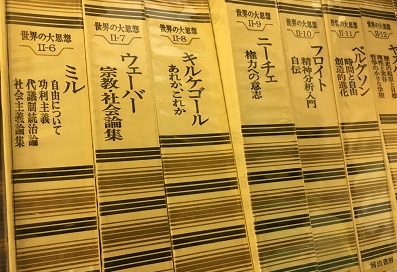 世界の大思想
II-6
ミル
自由について
功利主義
代議制統治論
社会主義論集
世界の大思想
II-7
ウェーバー
宗教・社会論集
世界の大思想
II-8
キルケゴール
あれか、これか
世界の大思想
II-9
ニーチェ
権力への意志
世界の大思想
II-10
フロイト
精神分析入門
自伝
世界の大思想
II-11
ベルグソン
時間と自由
創造的進化
世界の大思想
II-12
河出書房